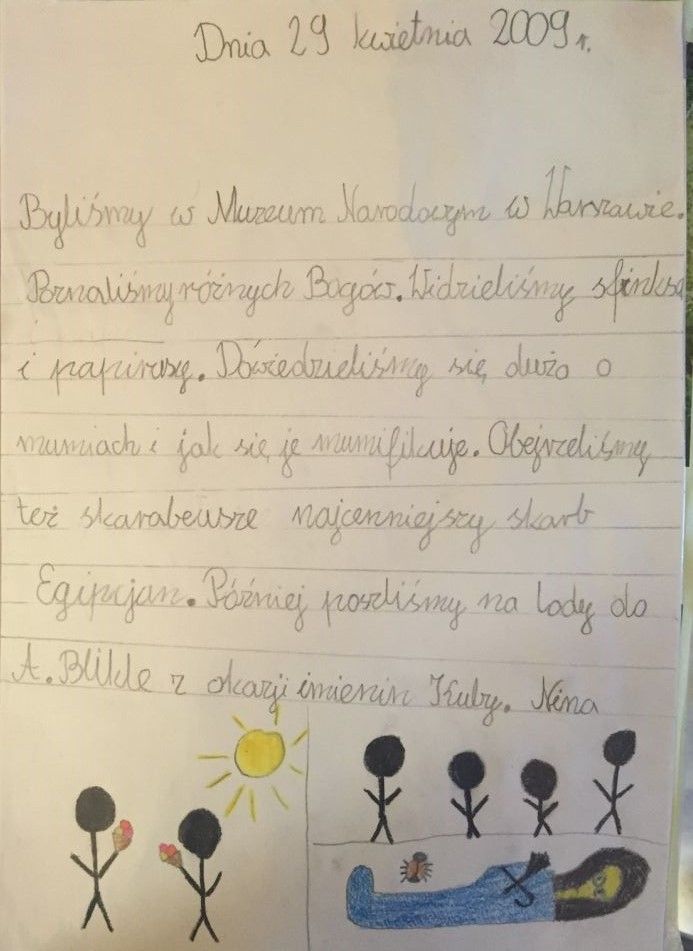 Dnia 29 kwietnia 2009 r.
Byliśmy w Muzeum Narodowym w Warszawie.
Poznaliśmy różnych Bogów. Widzieliśmy sfinksa
i papirusy. Dowiedzieliśmy się dużo o
mumiach i jak się je mumifikuje. Obejrzeliśmy
też skarabeusze najcenniejszy skarb
Egipcjan. Później poszliśmy na lody do
A. Blikle z okazji imienin Kuby. Nina